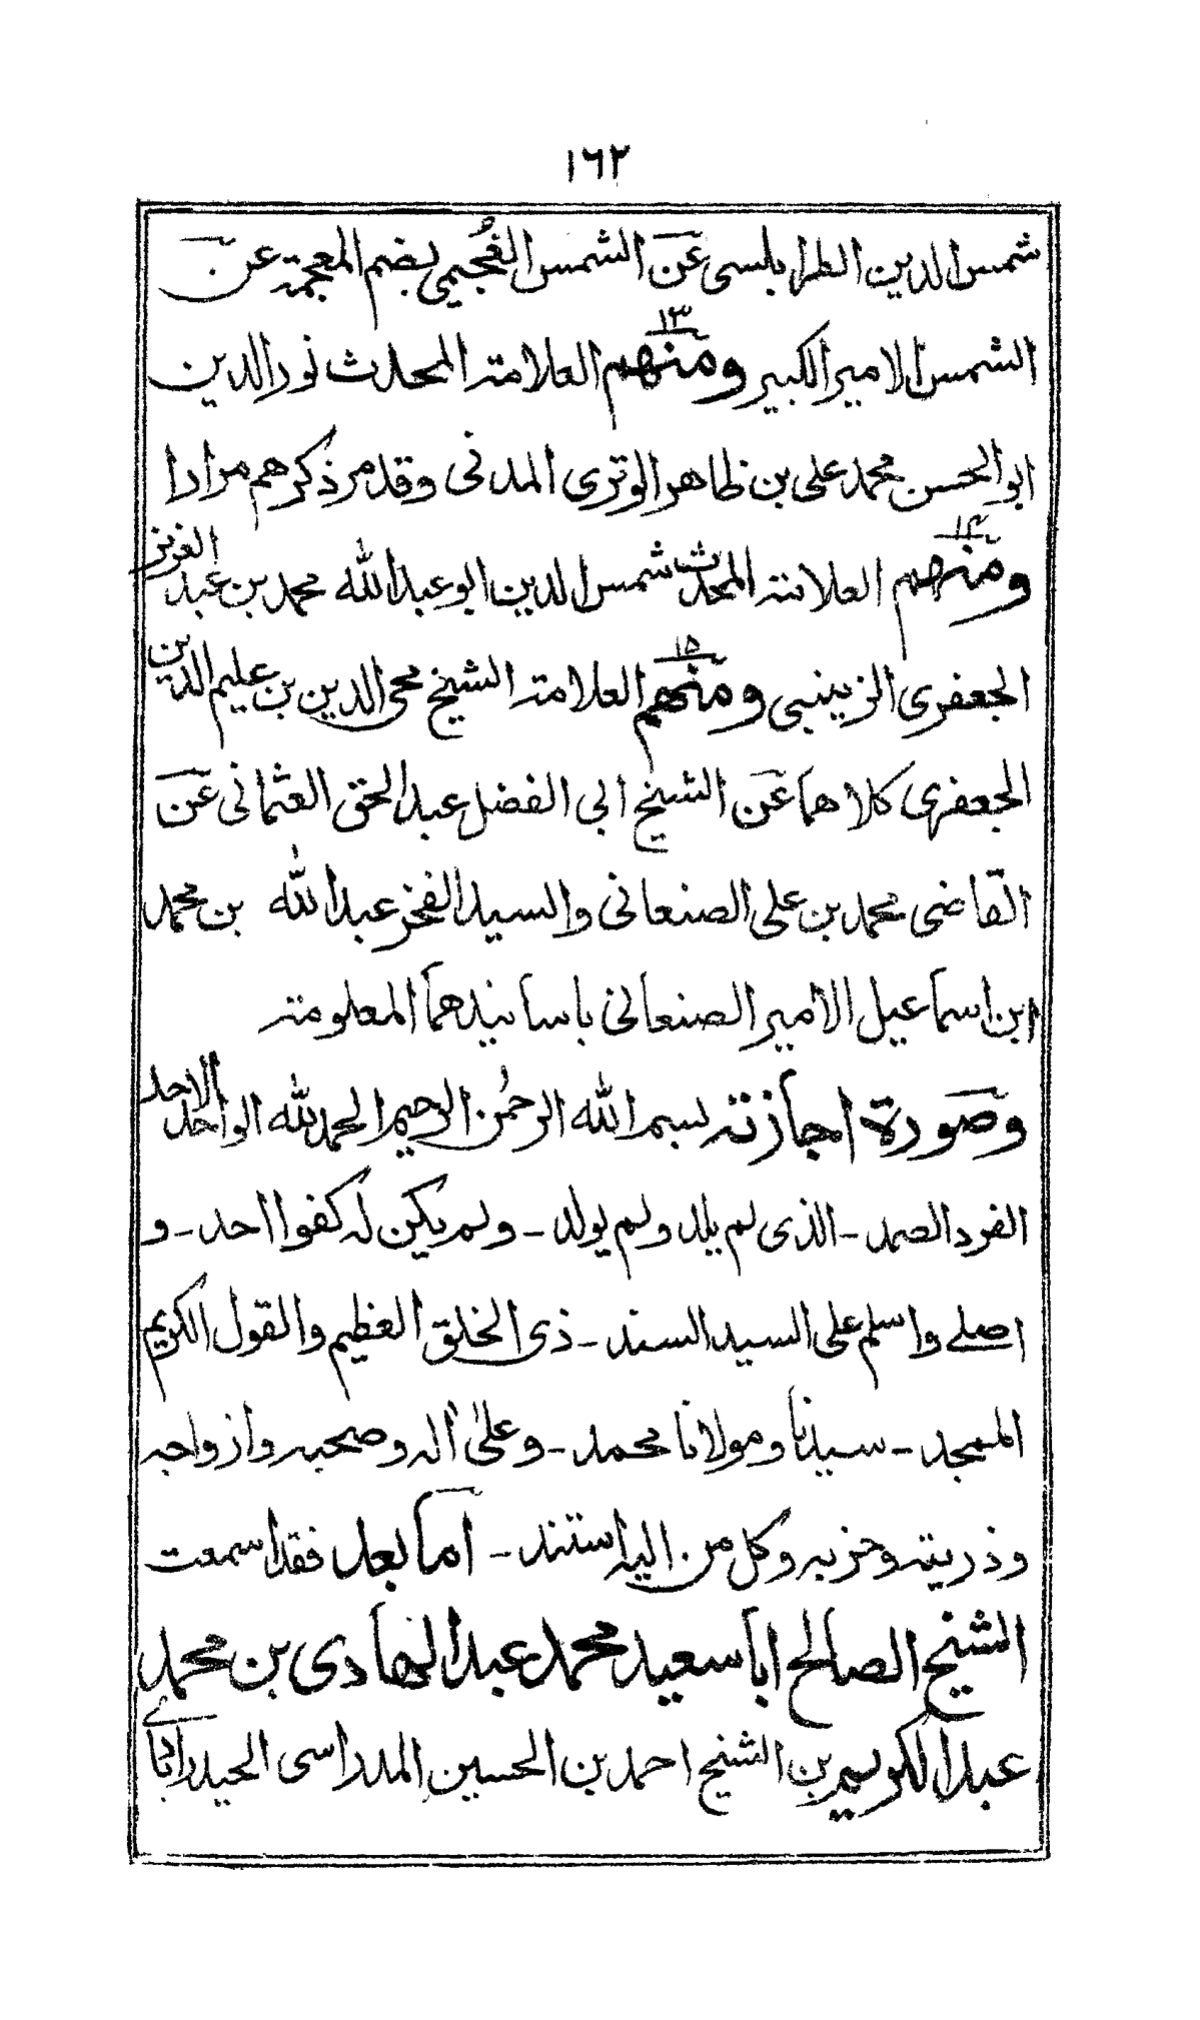 ١٦٢
شمس الدين الطرابلسى عن الشمس الغُجيمى بضم المعجمة عن
الشمس الامير الكبير ومنهم العلامة المحدث نور الدين
١٣
ابو الحسن محمد على بن ظاهر الوترى المدنى وقد مر ذكرهم مرارا
١٤
ومنهم العلامة المحدث شمس الدين ابو عبد الله محمد بن عبد العزيز
١٥
الجعفرى الزينبى ومنهم العلامة الشيخ محى الدين بن عليم الدين
الجعفرى كلاهما عن الشيخ ابى الفضل عبد الحق العثمانى عن
القاضى محمد بن على الصنعانى والسيد الفخر عبد الله بن محمد
ابن اسماعيل الامير الصنعانى باسانيدهما المعلومة
وصورة اجازته بسم الله الرحمٰن الرحيم الحمد لله الواحد الاحد
الفرد الصمد - الذى لم يلد ولم يولد - ولم يكن له كفوا احد - و
اصلے واسلم على السيد السند - ذى الخلق العظيم والقول الكريم
الممجد - سيدنا ومولانا محمد - وعلىٰ اٰله وصحبه وازواجه
وذريته وحزبه وكل من اليه استند - اما بعد فقد اسمعت
الشيخ الصالح ابا سعيد محمد عبد الهادى بن محمد
عبد الكريم بن الشيخ احمد بن الحسين المدراسى الحيدرابادے